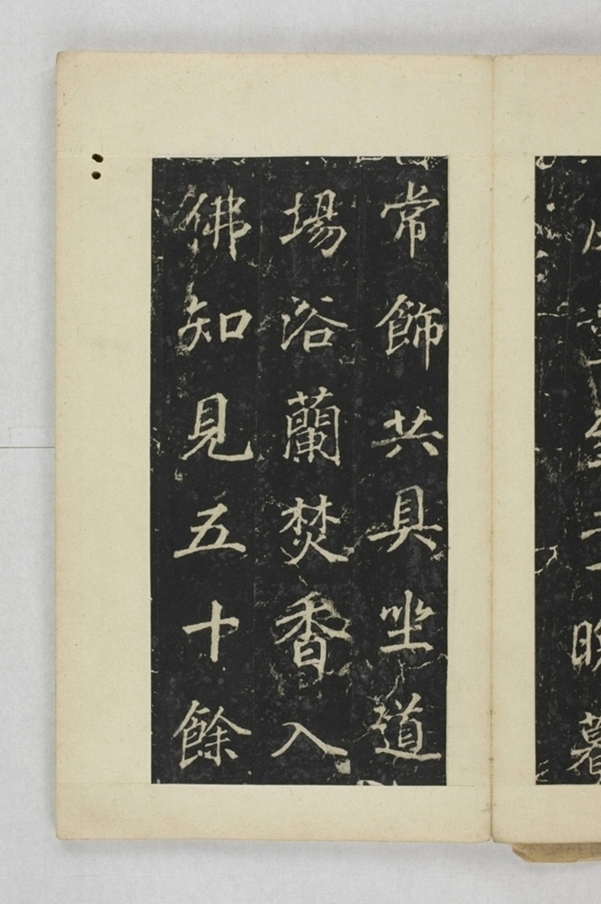 常飾共具坐道
場浴蘭焚香入
佛知見五十餘